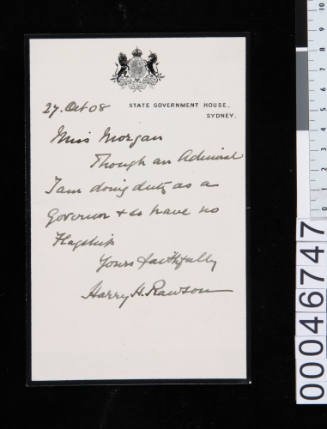 27. Oct 08
STATE GOVERNMENT HOUSE,
SYDNEY.
Miss Morgan
Though an Admiral
I am doing duty as a
Governor & so have no
Flagship
Yours faithfully
Harry H. Rawson
00046747